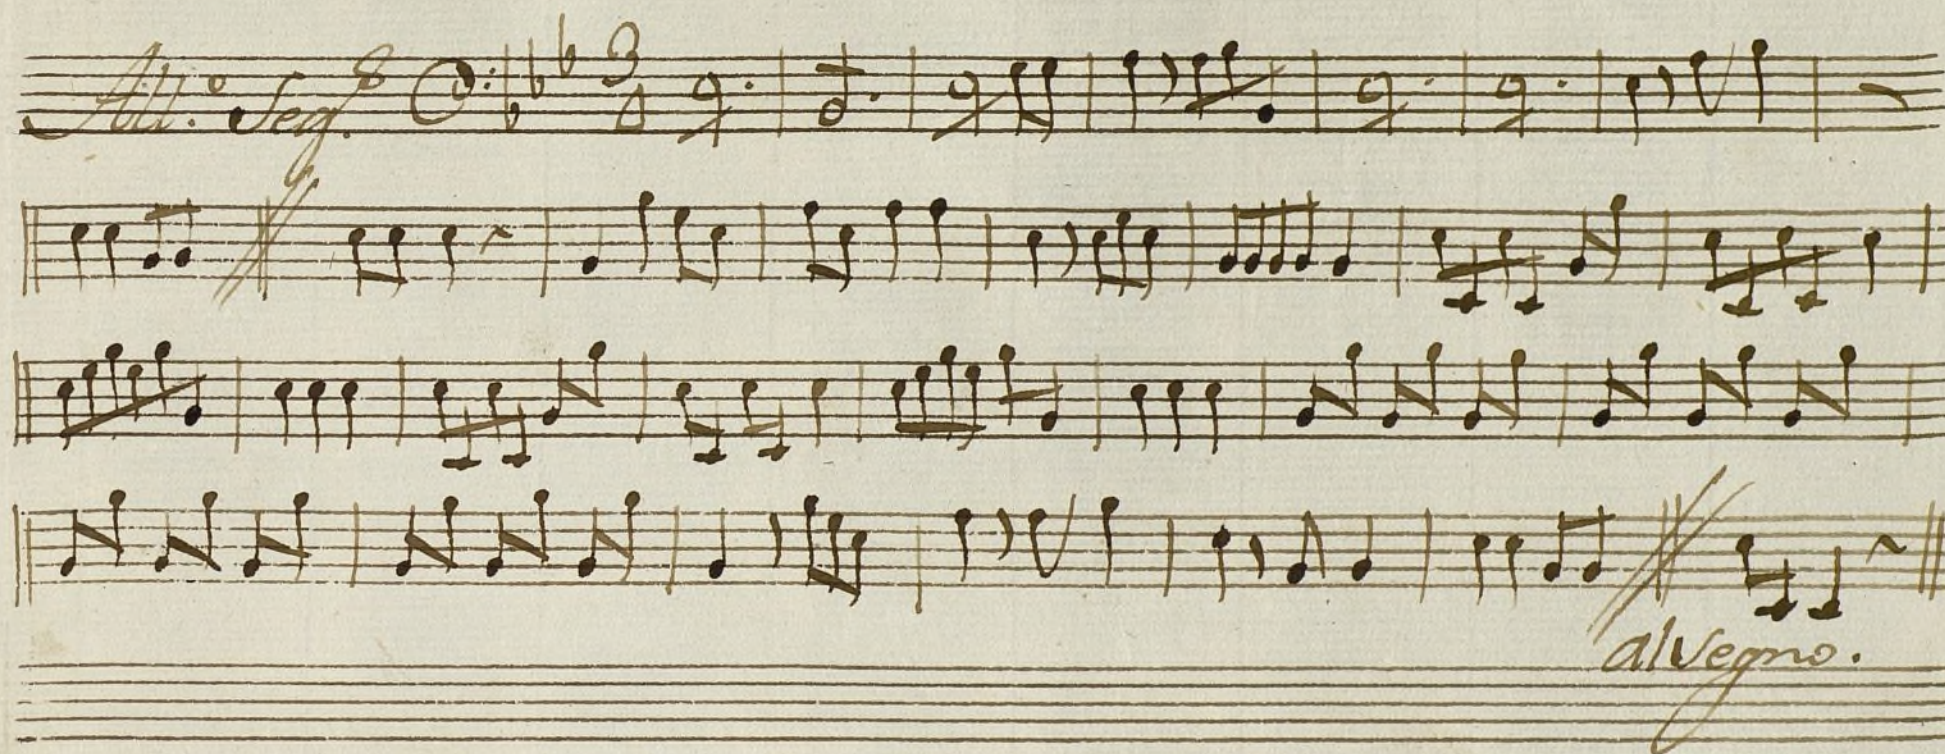 All.º Seg.ˢ 3
al Segno.